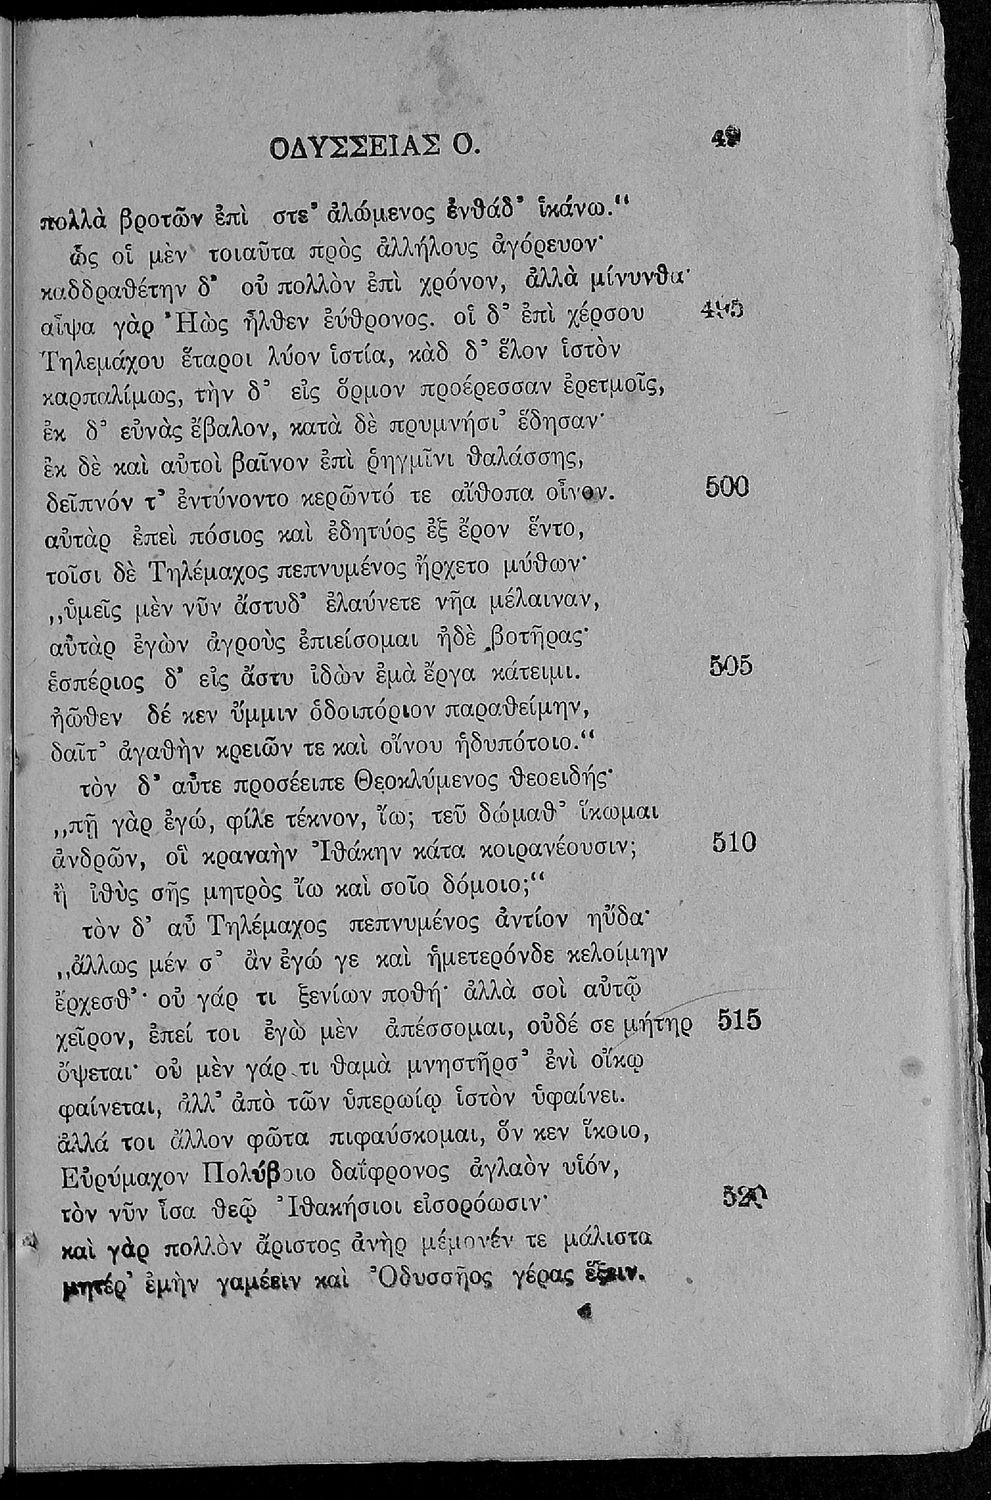 ΟΔΥΣΣΕΙΑΣ Ο. 49
πολλὰ βροτῶν ἐπὶ στε’ ἀλώμενος ἐνθάδ’ ἱκάνω.“
ὣς οἱ μὲν τοιαῦτα πρὸς ἀλλήλους ἀγόρευον·
καδδραθέτην δ’ οὐ πολλὸν ἐπὶ χρόνον, ἀλλὰ μίνυνθα·
αἶψα γὰρ Ἠὼς ἦλθεν ἐύθρονος. οἱ δ’ ἐπὶ χέρσου 495
Τηλεμάχου ἕταροι λύον ἱστία, κὰδ δ’ ἕλον ἱστὸν
καρπαλίμως, τὴν δ’ εἰς ὅρμον προέρεσσαν ἐρετμοῖς,
ἐκ δ’ εὐνὰς ἔβαλον, κατὰ δὲ πρυμνήσι’ ἔδησαν·
ἐκ δὲ καὶ αὐτοὶ βαῖνον ἐπὶ ῥηγμῖνι θαλάσσης,
δεῖπνόν τ’ ἐντύνοντο κερῶντό τε αἴθοπα οἶνον. 500
αὐτὰρ ἐπεὶ πόσιος καὶ ἐδητύος ἐξ ἔρον ἕντο,
τοῖσι δὲ Τηλέμαχος πεπνυμένος ἤρχετο μύθων·
„ὑμεῖς μὲν νῦν ἄστυδ’ ἐλαύνετε νῆα μέλαιναν,
αὐτὰρ ἐγὼν ἀγροὺς ἐπιείσομαι ἠδὲ βοτῆρας·
ἑσπέριος δ’ εἰς ἄστυ ἰδὼν ἐμὰ ἔργα κάτειμι. 505
ἠῶθεν δέ κεν ὔμμιν ὁδοιπόριον παραθείμην,
δαῖτ’ ἀγαθὴν κρειῶν τε καὶ οἴνου ἡδυπότοιο.“
τὸν δ’ αὖτε προσέειπε Θεοκλύμενος θεοειδής·
„πῇ γὰρ ἐγώ, φίλε τέκνον, ἴω; τεῦ δώμαθ’ ἵκωμαι
ἀνδρῶν, οἳ κραναὴν Ἰθάκην κάτα κοιρανέουσιν; 510
ἢ ἰθὺς σῆς μητρὸς ἴω καὶ σοῖο δόμοιο;“
τὸν δ’ αὖ Τηλέμαχος πεπνυμένος ἀντίον ηὔδα·
„ἄλλως μέν σ’ ἂν ἐγώ γε καὶ ἡμετερόνδε κελοίμην
ἔρχεσθ’· οὐ γάρ τι ξενίων ποθή· ἀλλὰ σοὶ αὐτῷ
χεῖρον, ἐπεί τοι ἐγὼ μὲν ἀπέσσομαι, οὐδέ σε μήτηρ 515
ὄψεται· οὐ μὲν γάρ τι θαμὰ μνηστῆρσ’ ἐνὶ οἴκῳ
φαίνεται, ἀλλ’ ἀπὸ τῶν ὑπερωίῳ ἱστὸν ὑφαίνει.
ἀλλά τοι ἄλλον φῶτα πιφαύσκομαι, ὅν κεν ἵκοιο,
Εὐρύμαχον Πολύβοιο δαΐφρονος ἀγλαὸν υἱόν,
τὸν νῦν ἶσα θεῷ Ἰθακήσιοι εἰσορόωσιν· 520
καὶ γὰρ πολλὸν ἄριστος ἀνὴρ μέμονέν τε μάλιστα
μητέρ’ ἐμὴν γαμέειν καὶ Ὀδυσσῆος γέρας ἕξειν.